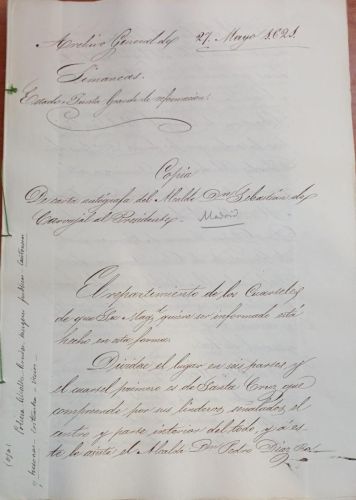 Archivo General de 27. Mayo 1621.
Simancas.
Estado = Junta Grande de reformacion:
Copia
De carta autógrafa del Alcalde Dn Sebastián de
Carvajal al Presidente. Madrid
El repartimiento de los Cuarteles
de que Su Magd. quiere ser informado está
hecho en esta forma.
Divídese el lugar en seis partes y
el cuartel primero es de Santa Cruz que
comprende por sus linderos señalados el
centro y parte interior del todo, y á es-
te lo asiste el Alcalde Don Pedro Díaz